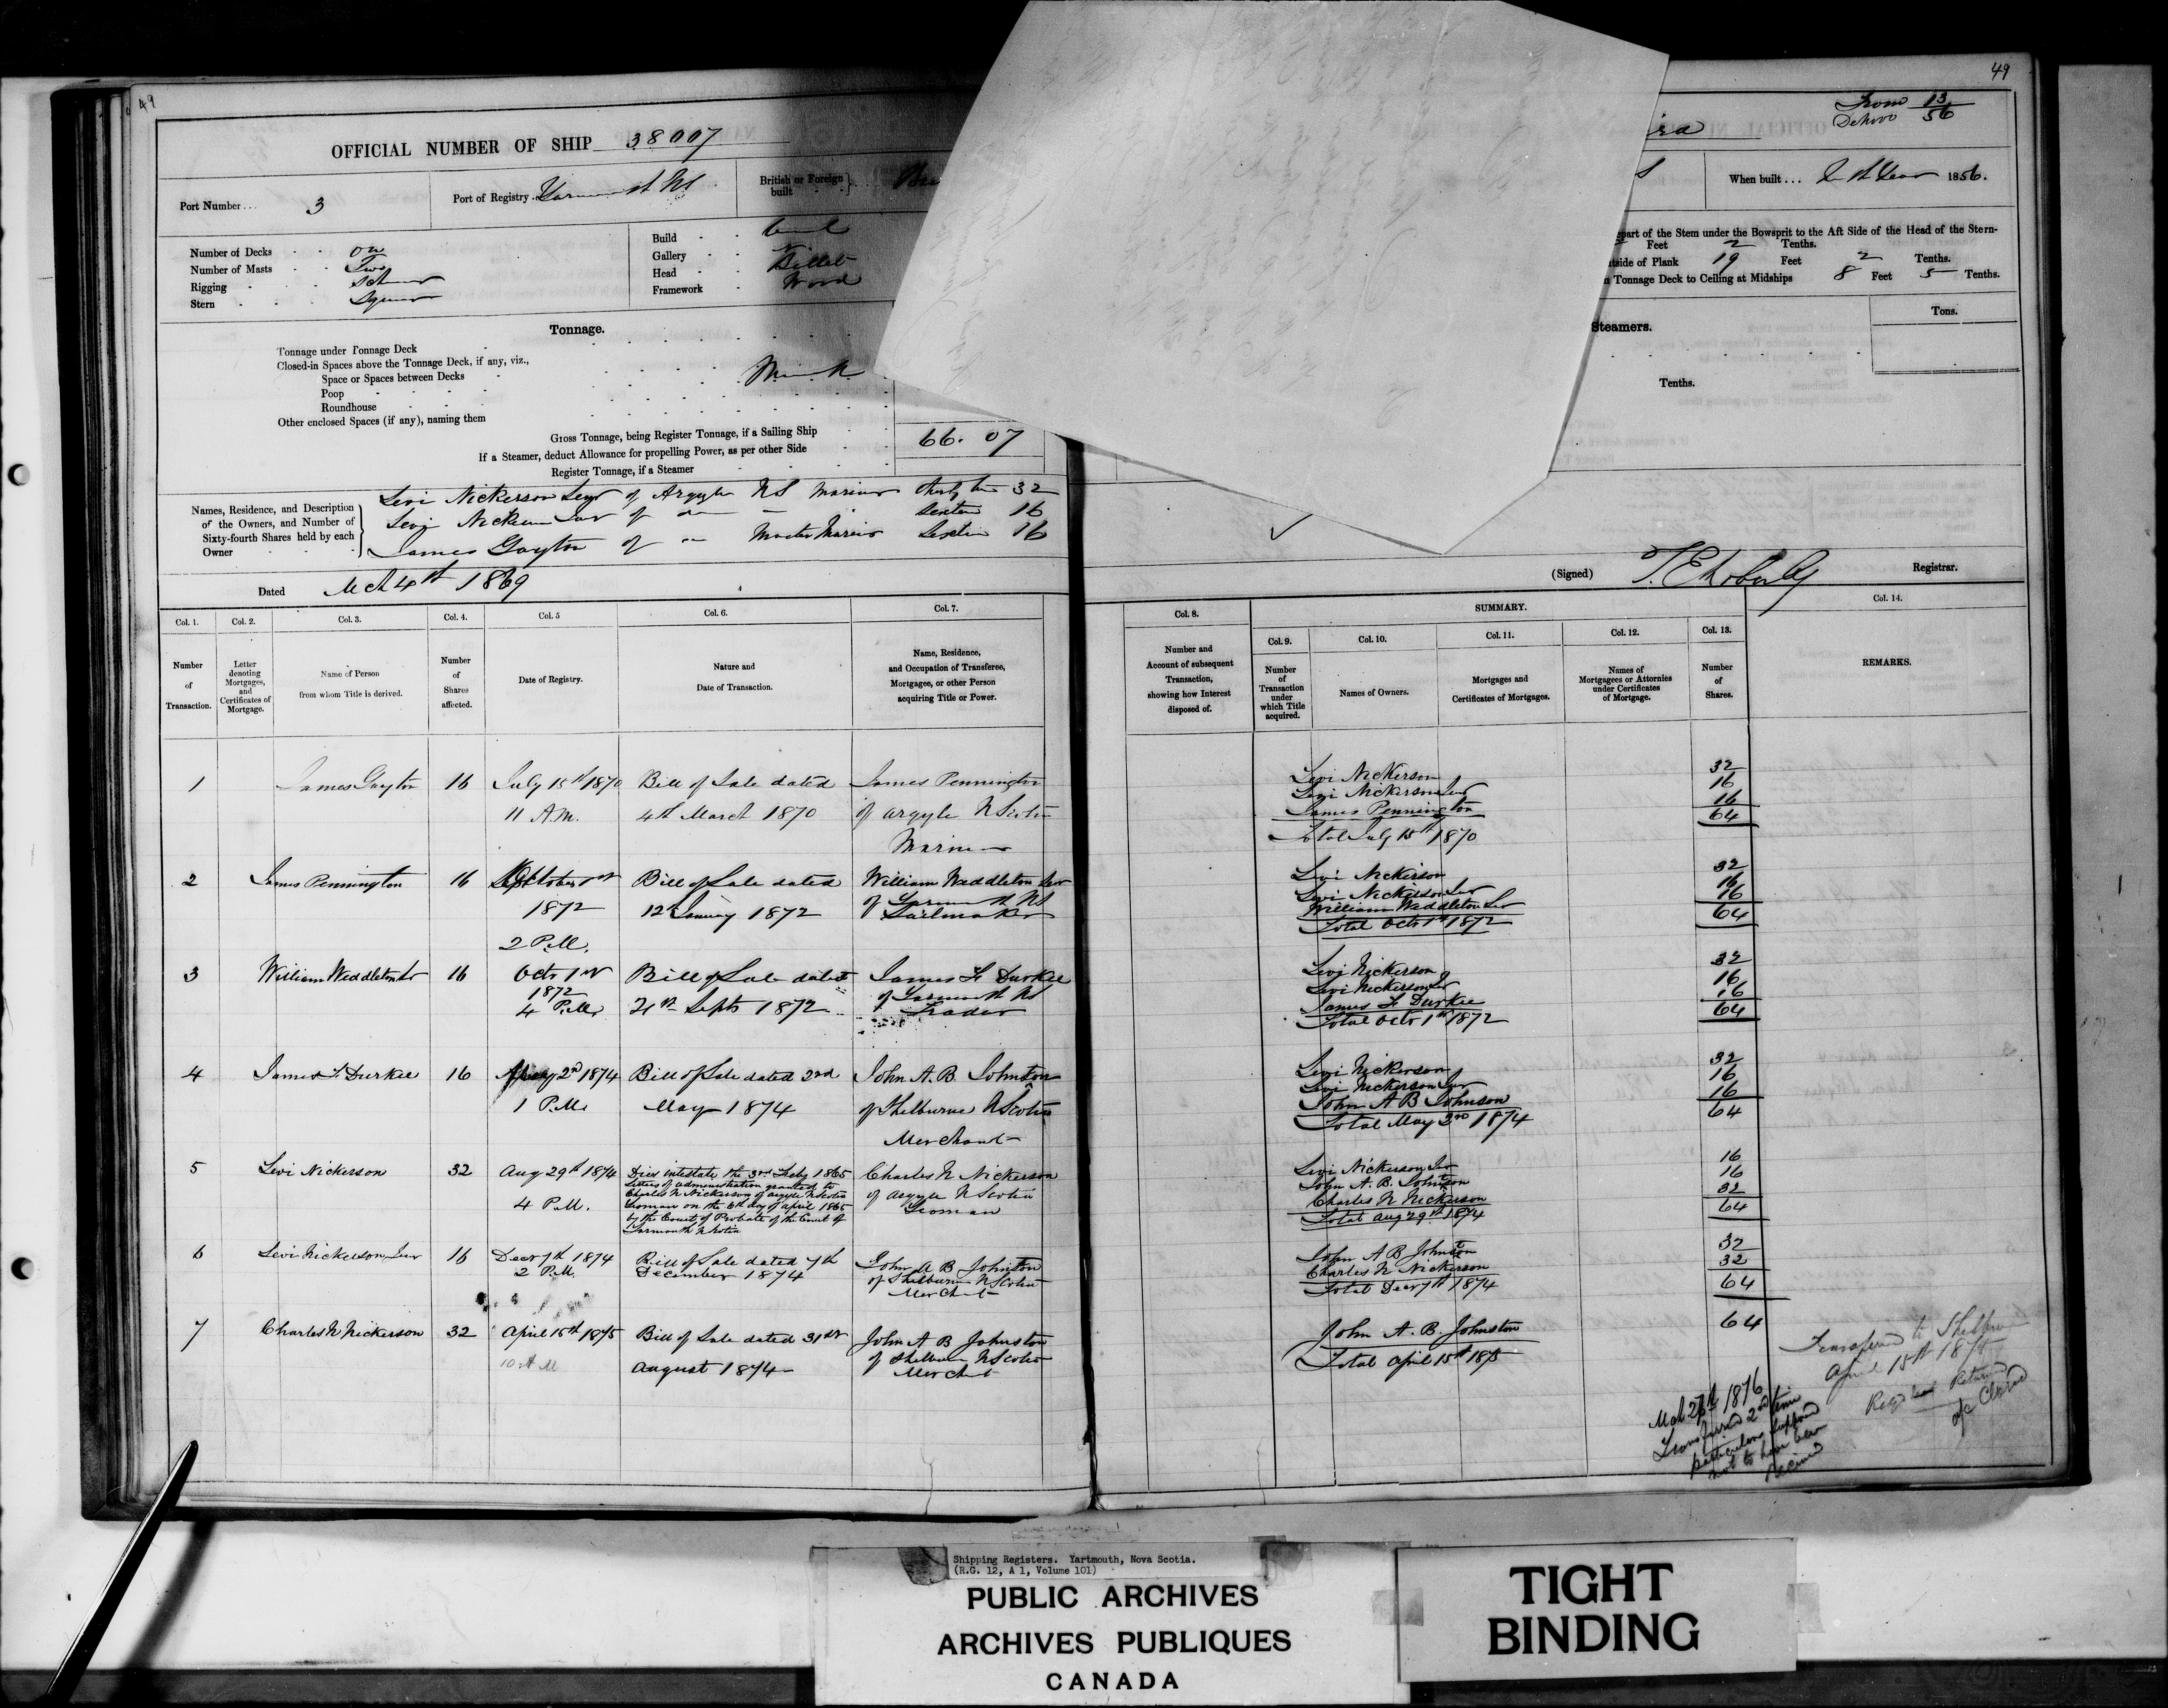 49
OFFICIAL NUMBER OF SHIP 38007
Port Number... 3
Port of Registry. Yarmouth NS
British or Foreign built
Number of Decks
Number of Masts Two
Rigging
Stern
Build
Gallery
Head Billet
Framework Wood
Tonnage.
Tonnage under Tonnage Deck
Closed-in Spaces above the Tonnage Deck, if any, viz.,
Space or Spaces between Decks
Poop
Roundhouse
Other enclosed Spaces (if any), naming them
Gross Tonnage, being Register Tonnage, if a Sailing Ship 66. 07
If a Steamer, deduct Allowance for propelling Power, as per other Side
Register Tonnage, if a Steamer
Names, Residence, and Description of the Owners, and Number of Sixty-fourth Shares held by each Owner
Levi Nickerson Senr of Argyle NS Mariner thirty two 32
Levi Nickerson Junr of do sixteen 16
James Gayton of do Master Mariner Sixteen 16
Dated Mch 4th 1869
Col. 1. Col. 2. Col. 3. Col. 4. Col. 5 Col. 6. Col. 7.
Number of Transaction.
Letter denoting Mortgages, and Certificates of Mortgage.
Name of Person from whom Title is derived.
Number of Shares affected.
Date of Registry.
Nature and Date of Transaction.
Name, Residence, and Occupation of Transferee, Mortgagee, or other Person acquiring Title or Power.
1 James Gayton 16 July 15th 1870 Bill of Sale dated James Pennington
11 A.M. 4th March 1870 of Argyle N Scotia
Mariner
2 James Pennington 16 October 1st Bill of Sale dated William Weddleton Senr
1872 12th January 1872 of Yarmouth NS
Sailmaker
2 P.M.
3 William Weddleton Sr 16 Octr 1st Bill of Sale dated James F. Durkee
1872 of Yarmouth NS
4 P.M. 21st Septr 1872 Trader
4 James F. Durkee 16 May 2nd 1874 Bill of Sale dated 2nd John A. B. Johnston
1 P.M. May 1874 of Shelburne N Scotia
Merchant
5 Levi Nickerson 32 Aug 29th 1874 Dies intestate the 3rd Feby 1865 Charles N Nickerson
Letters of administration granted to
4 P.M. Charles N Nickerson of Argyle N Scotia of Argyle N Scotia
Yeoman on the 6th day of April 1865 Yeoman
by the Court of Probate of the Court of
Yarmouth N Scotia
6 Levi Nickerson Junr 16 Decr 7th 1874 Bill of Sale dated 7th John A B Johnston
2 P.M. December 1874 of Shelburne N Scotia
Merchant
7 Charles N Nickerson 32 April 15th 1875 Bill of Sale dated 31st John A B Johnston
10 A M August 1874 of Shelburne N Scotia
Merchant
49
From 13/56
ira
S
When built... In the Year 1856.
part of the Stem under the Bowsprit to the Aft Side of the Head of the Stern-
Feet 2 Tenths.
tside of Plank 19 Feet 2 Tenths.
n Tonnage Deck to Ceiling at Midships 8 Feet 5 Tenths.
Steamers.
Tons.
Tenths.
(Signed) Registrar.
Col. 8. SUMMARY. Col. 14.
Col. 9. Col. 10. Col. 11. Col. 12. Col. 13.
Number and Account of subsequent Transaction, showing how Interest disposed of.
Number of Transaction under which Title acquired.
Names of Owners.
Mortgages and Certificates of Mortgages.
Names of Mortgagees or Attornies under Certificates of Mortgage.
Number of Shares.
REMARKS.
Levi Nickerson 32
Levi Nickerson Junr 16
James Pennington 16
64
Total July 15th 1870
Levi Nickerson 32
Levi Nickerson Junr 16
William Weddleton Sr 16
Total Octr 1st 1872 64
Levi Nickerson 32
Levi Nickerson Jr 16
James F. Durkee 16
Total Octr 1st 1872 64
Levi Nickerson 32
Levi Nickerson Junr 16
John A B Johnson 16
Total May 2nd 1874 64
Levi Nickerson Jnr 16
John A. B. Johnston 16
Charles N Nickerson 32
Total Aug 29th 1874 64
John A B Johnston 32
Charles N Nickerson 32
Total Decr 7th 1874 64
John A. B. Johnston 64
Total April 15th 1875
Transferred to Shelburne
April 15th 1875
Returned
a/c Closed
1876
Transferred 2nd time
particulars supposed
not to have been
received
Shipping Registers. Yartmouth, Nova Scotia.
(R.G. 12, A 1, Volume 101)
PUBLIC ARCHIVES
ARCHIVES PUBLIQUES
CANADA
TIGHT
BINDING